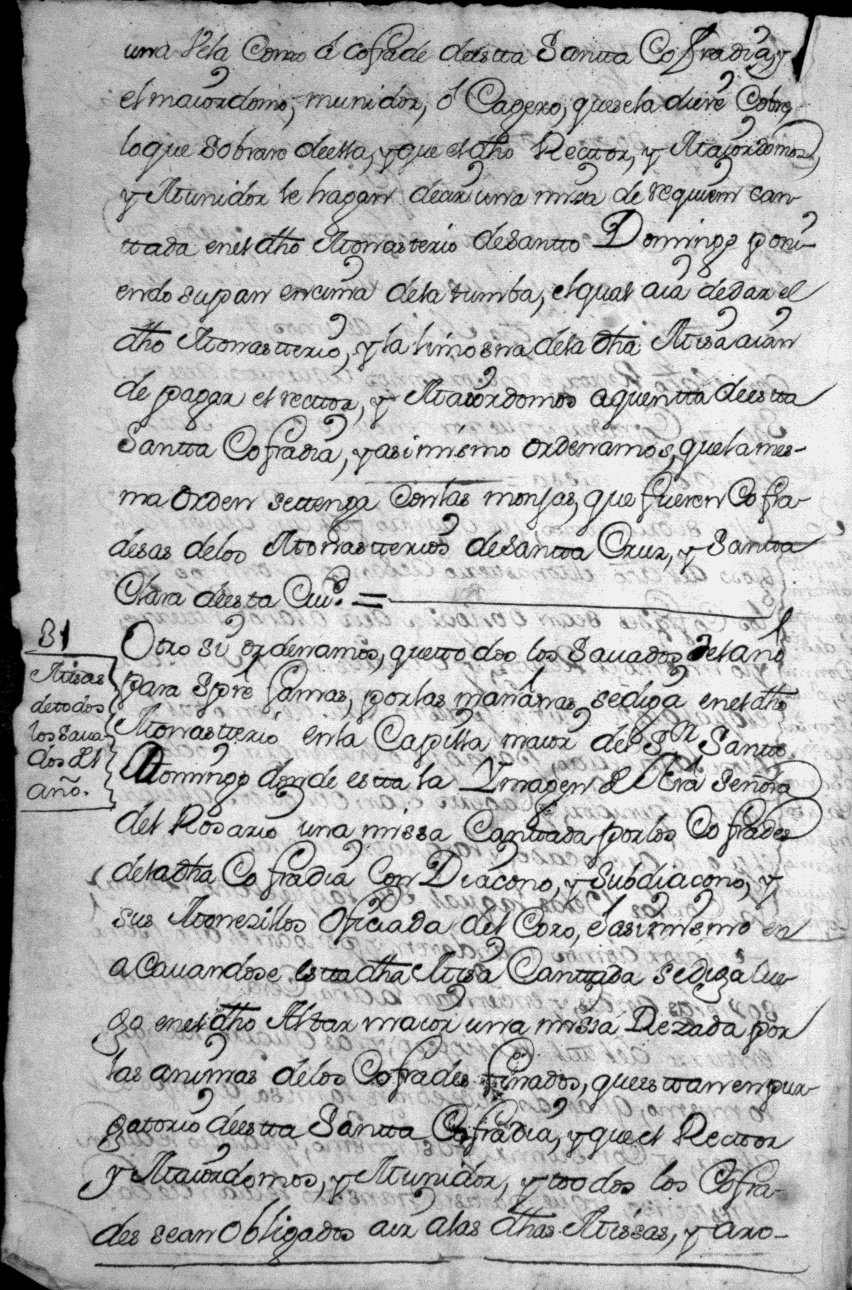 una Vela Como a Cofrade deesta Santta Cofradia, y
el maiordomo, munidor, ó Cagero, que se la diere Cobre
lo que Sobrare deella, y que el dho Recttor, y Maiordomos,
y Munidor le hagan decir una misa de requiem can-
ttada en el dho Monasterio de Santto Domingo poni-
endo su pan encima de la tumba, el qual aia de dar el
dho Monastterio, y la limosna de la dha Misa aian
de pagar el recttor, y Maiordomos a quentta deestta
Santta Cofradia, y asimismo ordenamos, que la mes-
ma orden se ttenga Con las monjas, que fueren Cofra-
desas de los Monastterios de Santta Cruz, y Santta
Clara deesta Ciud. =
31
Misas
de todos
los Sava
dos del
año.
Otro si ordenamos, que ttodos los Savados del año
para Spre Jamas, por las mañanas se diga en el dho
Monastterio en la Capilla maior del Sr Santto
Domingo donde estta la Ymagen de Nra Señora
del Rosario una missa Canttada por los Cofrades
de la dha Cofradia Con Diacono, y Subdiacono, y
sus Monezillos Oficiada del Coro, é asimismo en
acavandose estta dha Misa Canttada se diga lue-
go en el dho Altar maior una missa Rezada por
las animas de los Cofrades finados, que esttan en pur-
gatorio deestta Santta Cofradia, y que el Recttor
y Maiordomos, y Munidor, y ttodos los Cofra-
des sean Obligados a ir a las dhas Missas, y a ro-